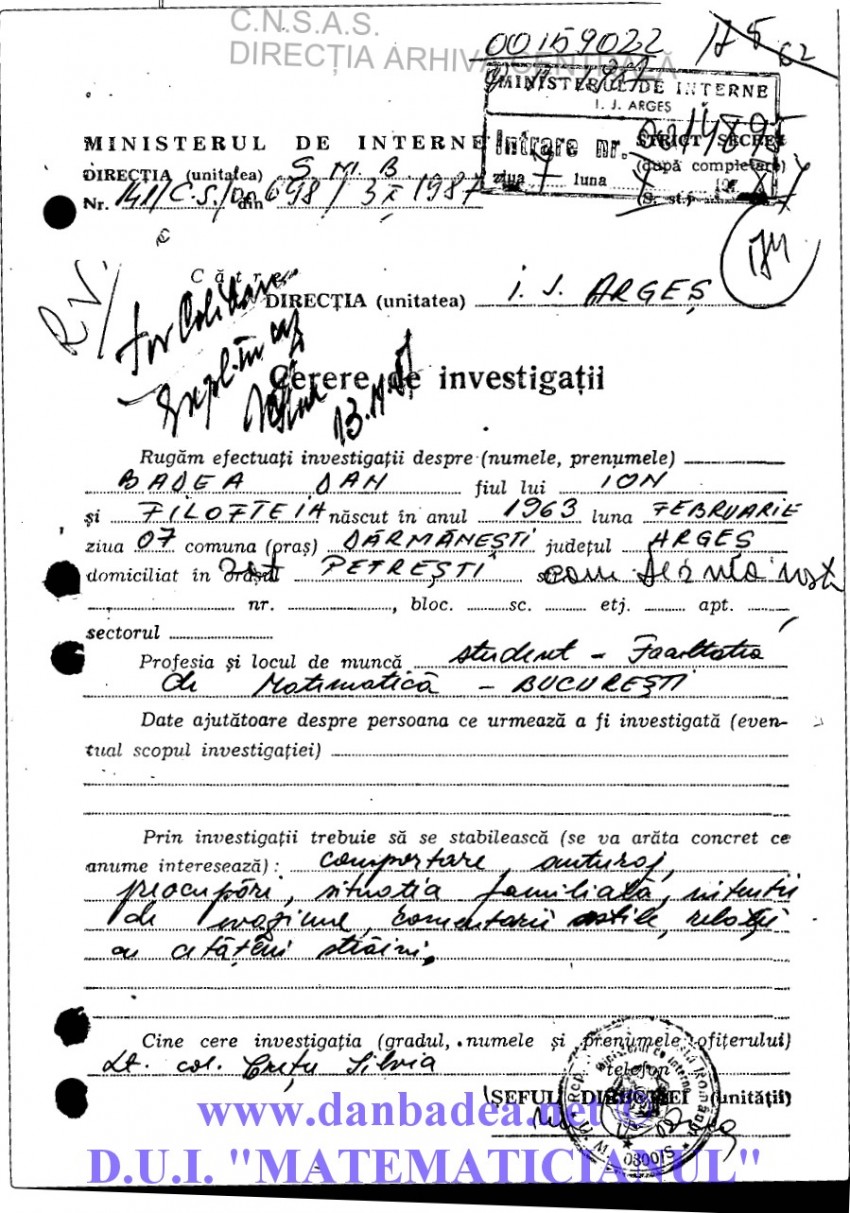 C.N.S.A.S.
DIRECȚIA ARHIVA CENTRALĂ
00159022
175
62
MINISTERUL DE INTERNE
I. J. ARGEȘ
Intrare nr. 0014895
ziua 7 luna
MINISTERUL DE INTERNE
STRICT SECRET
DIRECȚIA (unitatea) S M B
(după completare)
Nr. 141/C.S./ din 698 / 3 X 1987
(S. st.)
174
R.V./
Către
DIRECȚIA (unitatea) I. J. ARGEȘ
Cerere de investigații
13.
Rugăm efectuați investigații despre (numele, prenumele)
BADEA DAN fiul lui ION
și FILOFTEIA născut în anul 1963 luna FEBRUARIE
ziua 07 comuna (oraș) DĂRMĂNEȘTI județul ARGEȘ
domiciliat în sat PETREȘTI com
nr. , bloc. sc. etj. apt.
sectorul
Profesia și locul de muncă student - Facultatea
de Matematică - BUCUREȘTI
Date ajutătoare despre persoana ce urmează a fi investigată (even-
tual scopul investigației)
Prin investigații trebuie să se stabilească (se va arăta concret ce
anume interesează): comportare, anturaj,
preocupări, situația familială, intenții
de evaziune, comentarii ostile, relații
cu cetățeni străini.
Cine cere investigația (gradul, numele și prenumele ofițerului)
Lt. col. Crețu Silvia telefon
ȘEFUL DIRECȚIEI (unității)
www.danbadea.net ©
D.U.I. "MATEMATICIANUL"